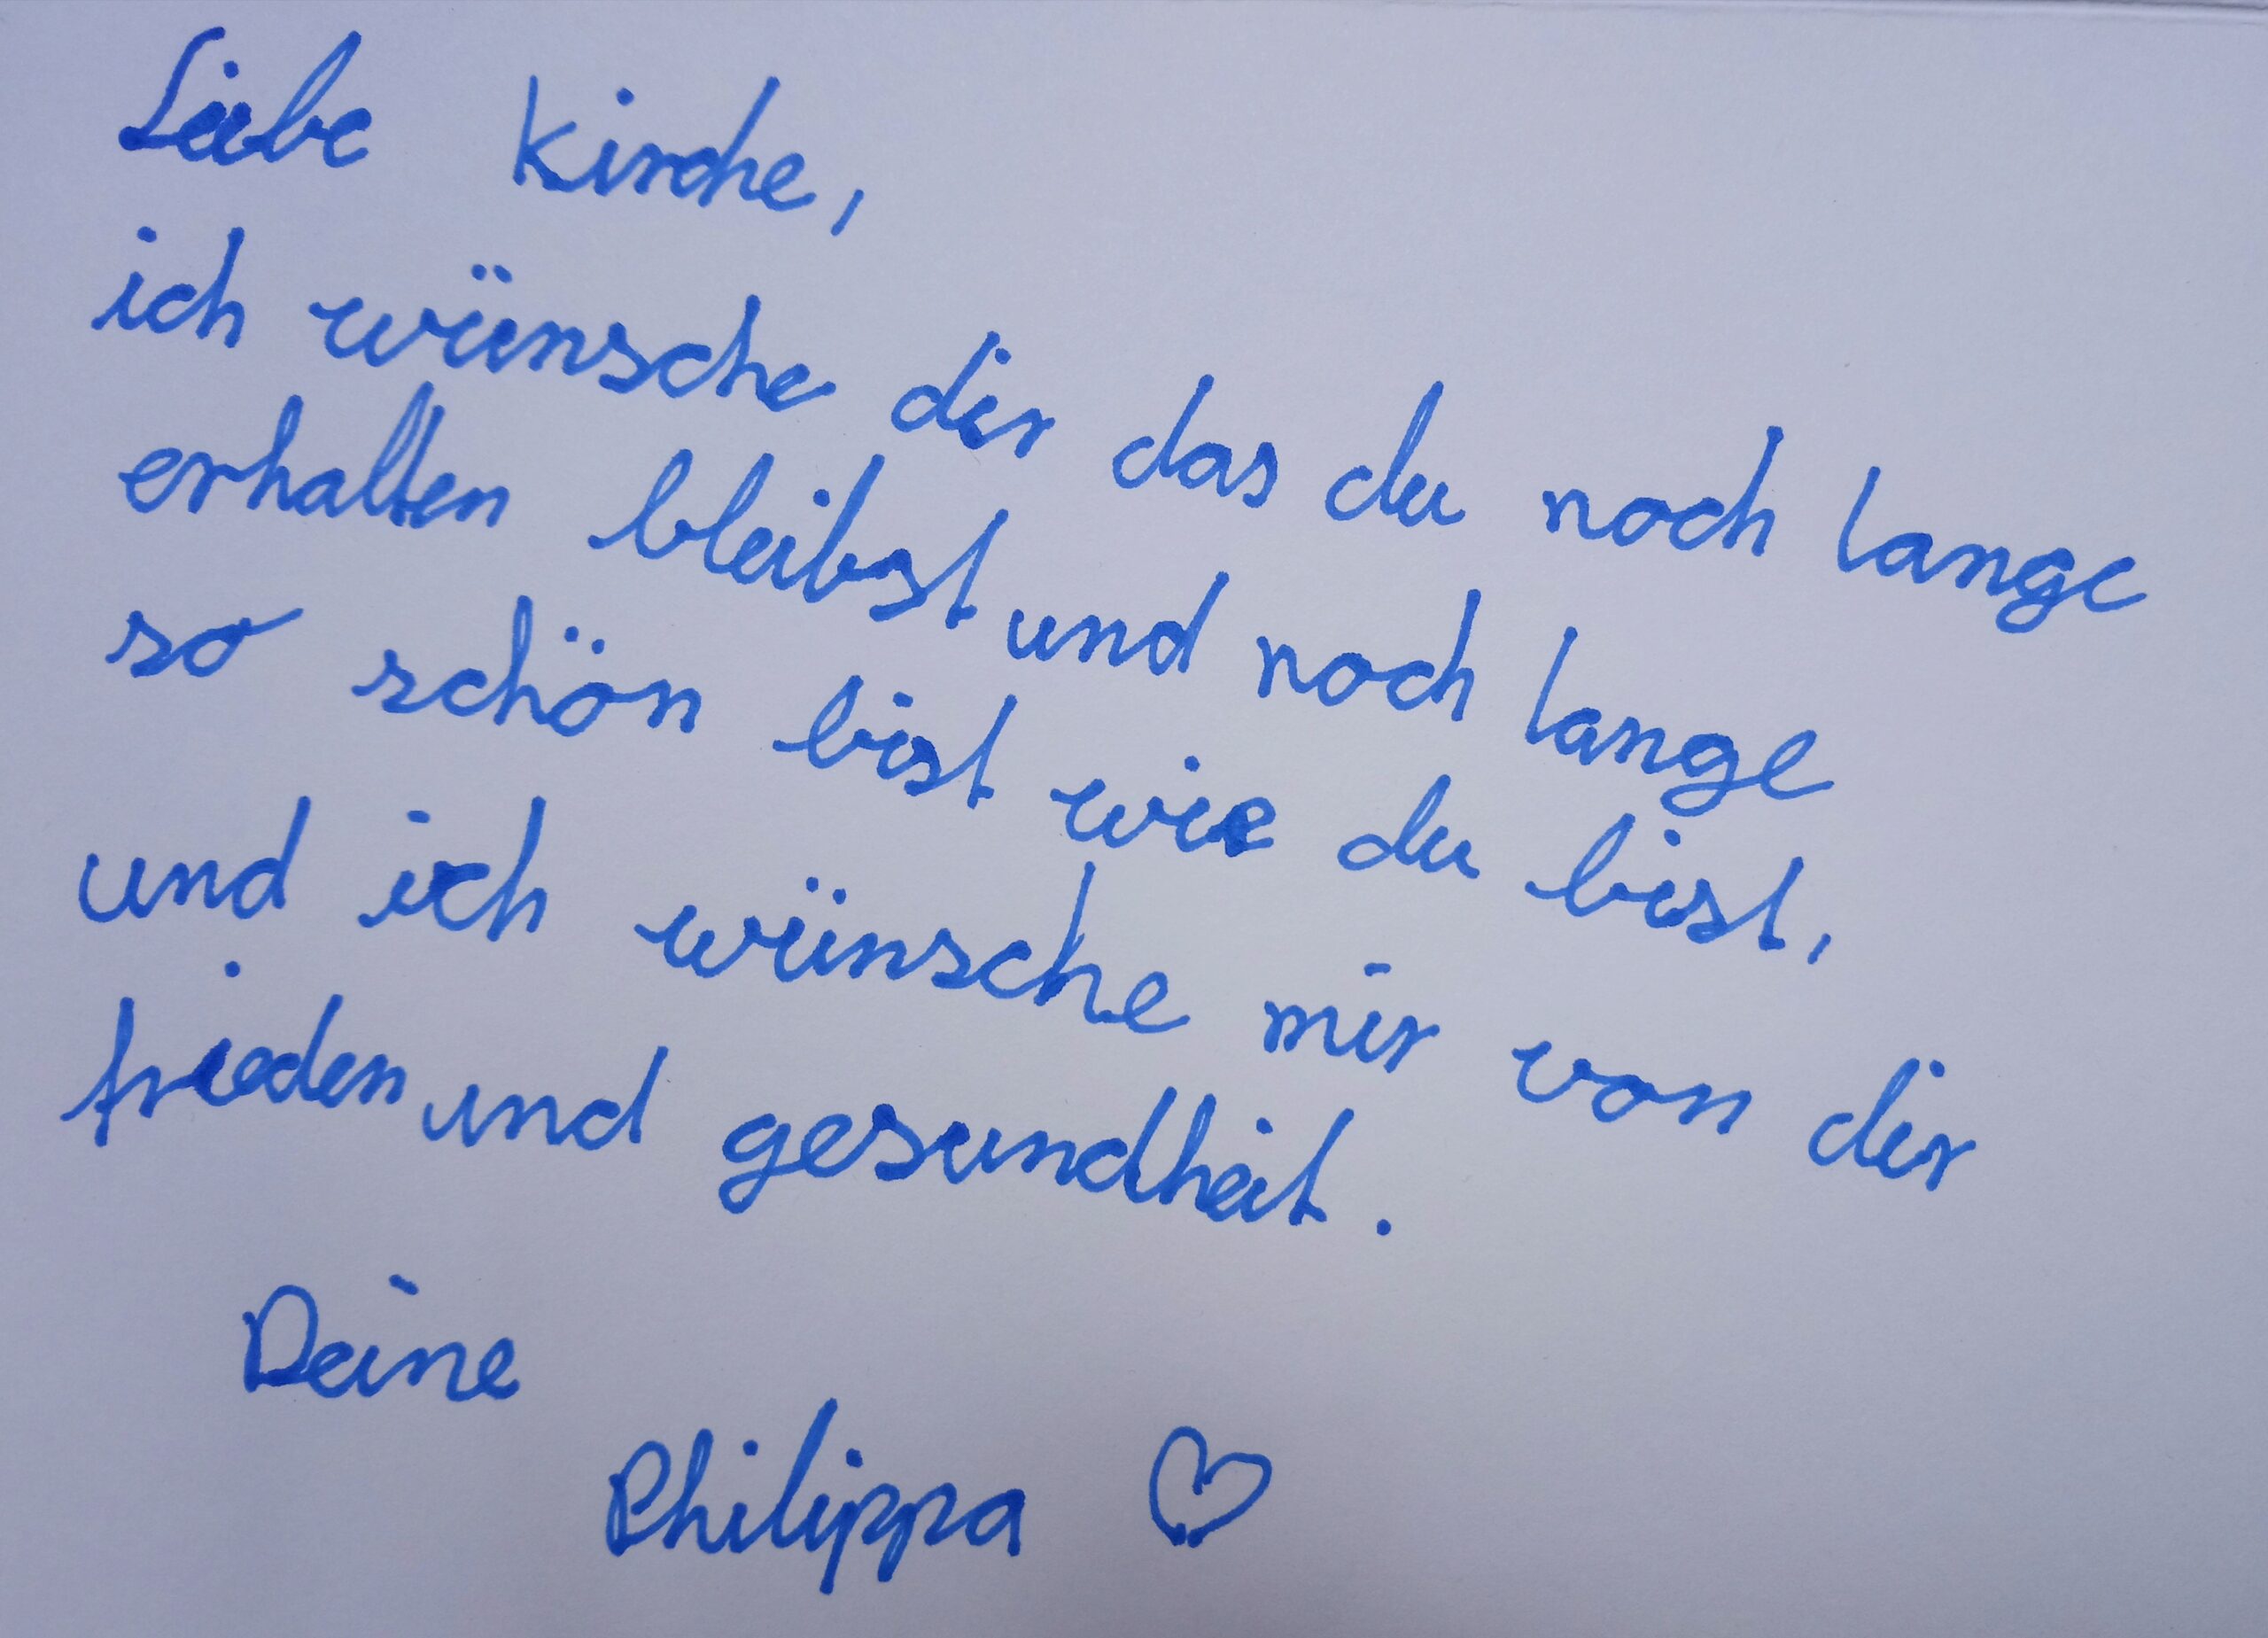 Liebe Kirche,
ich wünsche dir das du noch lange
erhalten bleibst und noch lange
so schön bist wie du bist,
und ich wünsche mir von dir
frieden und gesundheit.
Deine
Philippa ♡